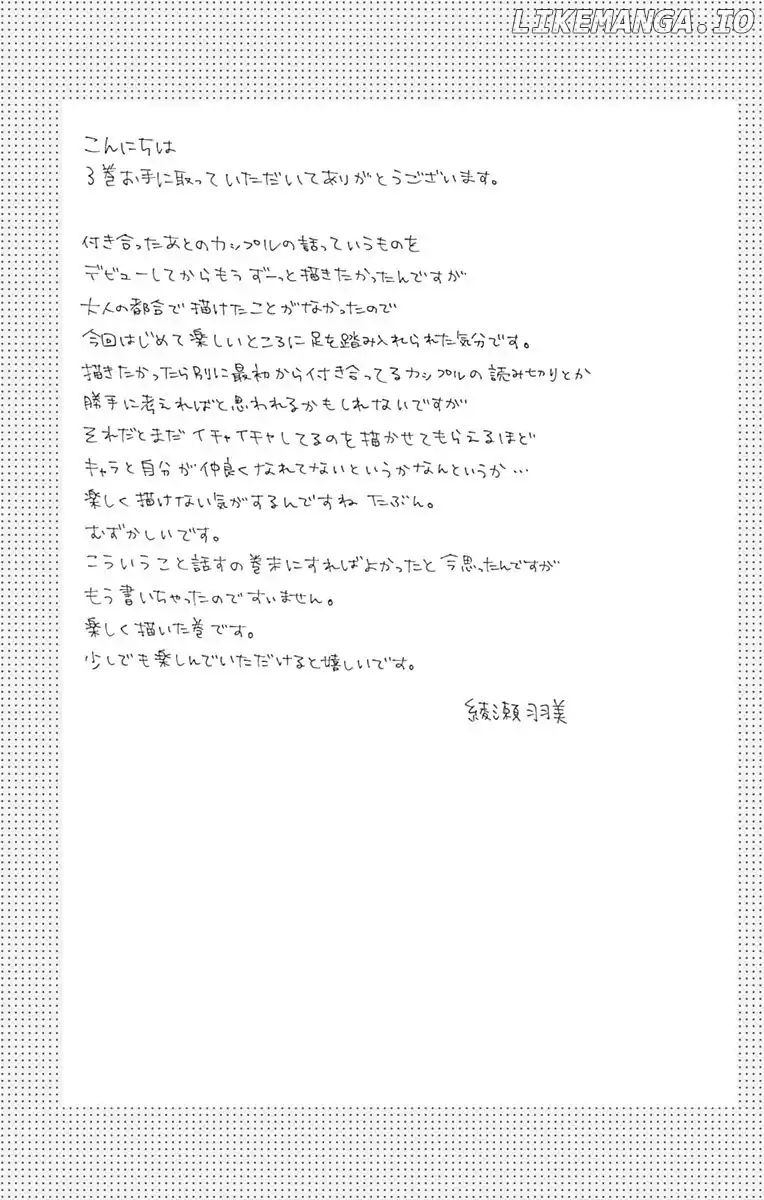 LIKEMANGA.IO
こんにちは
3巻お手に取っていただいてありがとうございます。
付き合ったあとのカップルの話っていうものを
デビューしてからもう ずーっと描きたかったんですが
大人の都合で描けたことがなかったので
今回はじめて楽しいところに足を踏み入れられた気分です。
描きたかったら別に最初から付き合ってるカップルの読み切りとか
勝手に考えればと思われるかもしれないですが
それだとまだイチャイチャしてるのを描かせてもらえるほど
キャラと自分が仲良くなれてないというかなんというか…
楽しく描けない気がするんですね たぶん。
むずかしいです。
こういうこと話すの巻末にすればよかったと今思ったんですが
もう書いちゃったのですいません。
楽しく描いた巻です。
少しでも楽しんでいただけると嬉しいです。
綾瀬羽美